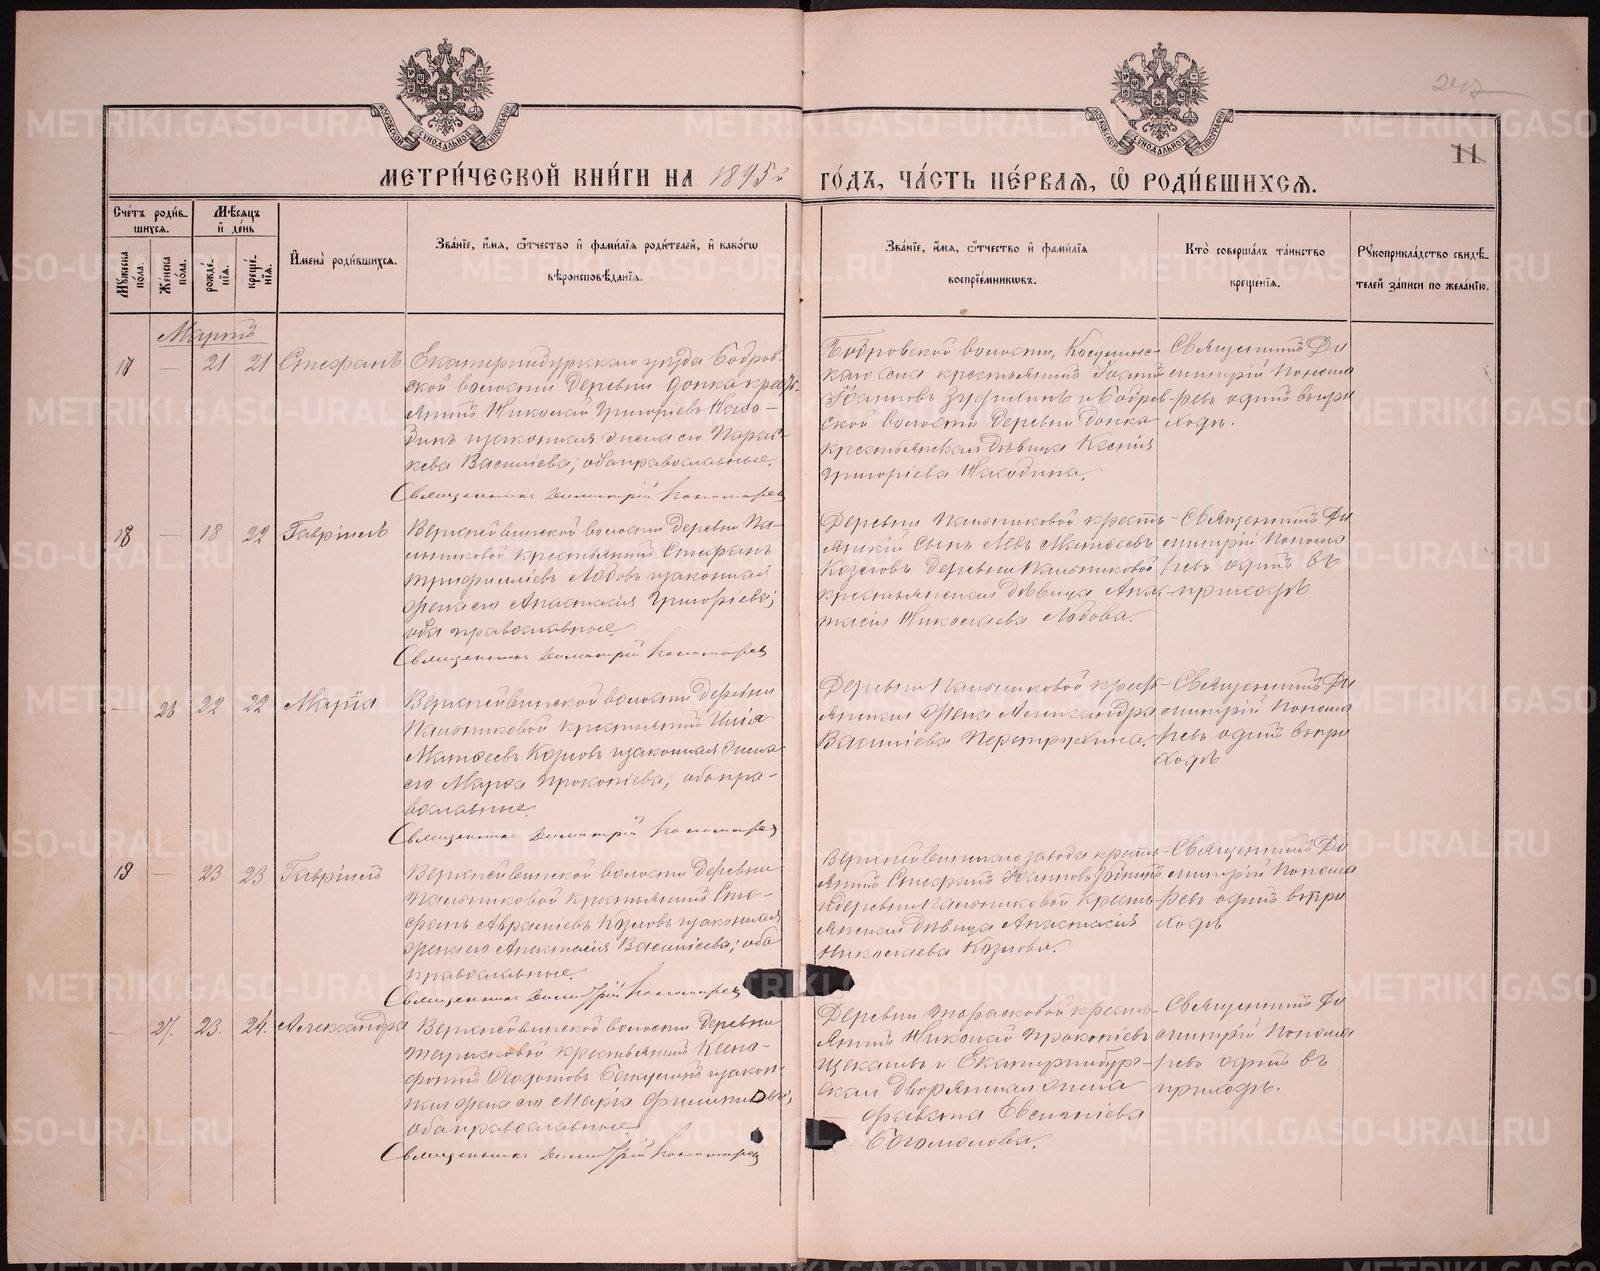 METRIKI.GASO-URAL.RU
247
11
МОСКОВСКОЙ СѴНОДАЛЬНОЙ ТИПОГРАФІИ
МОСКОВСКОЙ СѴНОДАЛЬНОЙ ТИПОГРАФІИ
МЕТРИ́ЧЕСКОЙ КНИ́ГИ НА 1895й ГО́ДЪ, ЧА́СТЬ ПЕ́РВАЯ, Ѡ҆ РОДИ́ВШИХСЯ.
Сче́тъ роди́в-
шихся.
Му́жеска по́ла.
Же́нска по́ла.
Мѣ́сяцъ
и҆ де́нь
рожде́-
нїя.
креще́-
нїя.
И҆мена̀ роди́вшихся.
Зва́нїе, и҆́мя, ѻ҆́тчество и҆ фами́лїя роди́телей, и҆ како́гѡ
вѣроисповѣ́данїя.
Зва́нїе, и҆́мя, ѻ҆́тчество и҆ фами́лїя
воспрїе́мникѡвъ.
Кто̀ соверша́лъ та́инство
креще́нїя.
Рꙋкоприкла́дство свидѣ́-
телей за́писи по жела́нїю.
Мартъ
17 — 21 21 Стефанъ
Екатеринбургскаго уѣзда Бобров-
ской волости деревни
Николай Григоріевъ Нахо-
динъ и законная жена его Парас-
кева Василіева; оба православные.
Священникъ Димитрій Пономарев
Бобровской волости,
села крестьянинъ Іоаннъ
Іоанновъ и Бобров-
ской волости деревни
крестьянская дѣвица Ксенія
Григоріева Находина.
Священникъ Ди-
митрій Понома-
ревъ одинъ въ при-
ходѣ.
18 — 18 22 Гавріилъ
Верхнейвинской волости деревни Па-
льниковой крестьянинъ Стефанъ
Трифилліевъ Лобовъ и законная
жена его Анастасія Григоріева;
оба православные.
Священникъ Димитрій Пономарев
Деревни Пальниковой кресть-
янскій сынъ Левъ Матѳеевъ
Козловъ деревни Пальниковой
крестьянская дѣвица Анас-
тасія Николаева Лобова.
Священникъ Ди-
митрій Понома-
ревъ одинъ въ
приходѣ
— 26 22 22 Марія
Верхнейвинской волости деревни
Пальниковой крестьянинъ Илія
Матѳеевъ Козловъ и законная жена
его Марѳа Прокопіева; оба пра-
вославные.
Священникъ Димитрій Пономарев
Деревни Пальниковой кресть-
янская жена Александра
Василіева Перетрухина.
Священникъ Ди-
митрій Понома-
ревъ одинъ въ при-
ходѣ
19 — 23 23. Гавріилъ
Верхнейвинской волости деревни
Пальниковой крестьянинъ Сте-
фанъ Авраміевъ Козловъ и законная
жена его Анастасія Василіева; оба
православные.
Священникъ Димитрій Пономарев
Верхнейвинскаго завода кресть-
янинъ Стефанъ Іоанновъ
и деревни Пальниковой кресть-
янская дѣвица Анастасія
Николаева Козлова.
Священникъ Ди-
митрій Понома-
ревъ одинъ въ при-
ходѣ
— 27. 23. 24. Александра
Верхнейвинской волости деревни
Тарасковой крестьянинъ Ксено-
фонтъ Ѳедотовъ и закон-
ная жена его Марія Филиппова;
оба православные.
Священникъ Димитрій Пономарев
Деревни Тарасковой кресть-
янинъ Николай Прокопіевъ
Щекалевъ и Екатеринбур-
ская дворянская жена
Евсигніева
Богомолова.
Священникъ Ди-
митрій Понома-
ревъ одинъ въ
приходѣ.